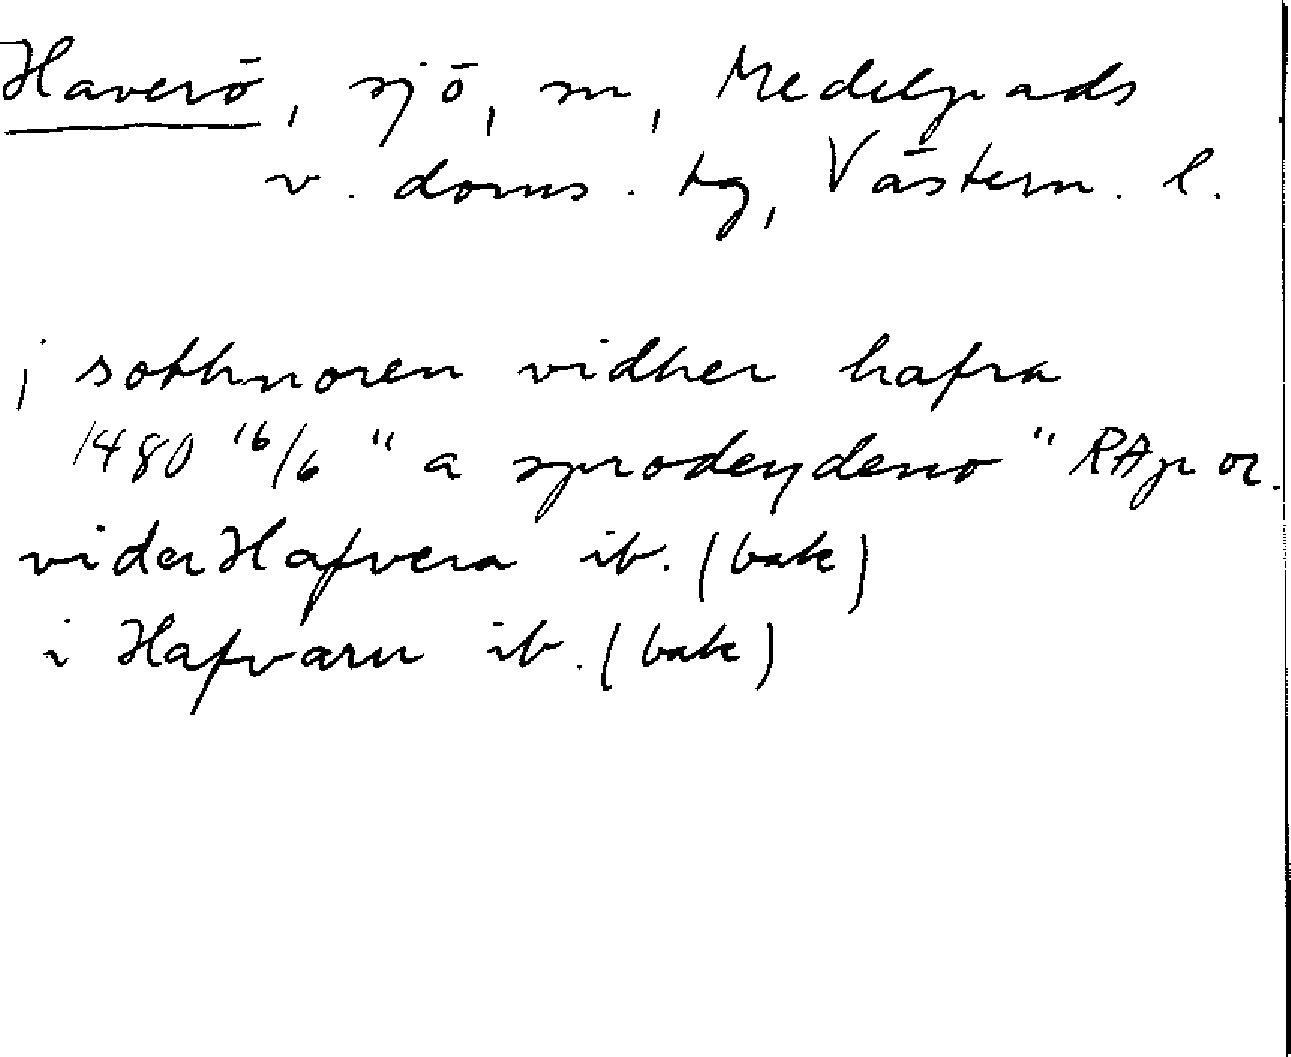 Haverö, sjö, sn, Medelpads
v. doms. tg, Västern. l.
j sothnoren vidher hafra
1480 16/6 "a sprodeydeno" RAp or.
vider Hafvera ib. (bak)
i Hafvaru ib. (bak)